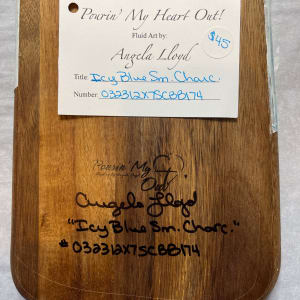 Pourin' My Heart Out!
Fluid Art by:
Angela Lloyd
$45
Title: Icy Blue Sm. Charc.
Number: 032312X7SCBB174
Pourin' My
Out!
Angela Lloyd
"Icy Blue Sm. Charc."
# 032312X7SCBB174